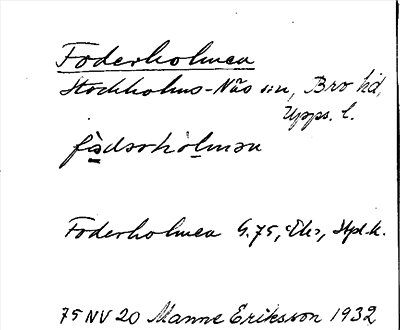 Foderholmen
Stockholms-Näs sn, Bro hd,
Upps. l.
fòdərhòlmən
Foderholmen G.75, Ek., Hpl.k.
75 NV 20 Manne Eriksson 1932